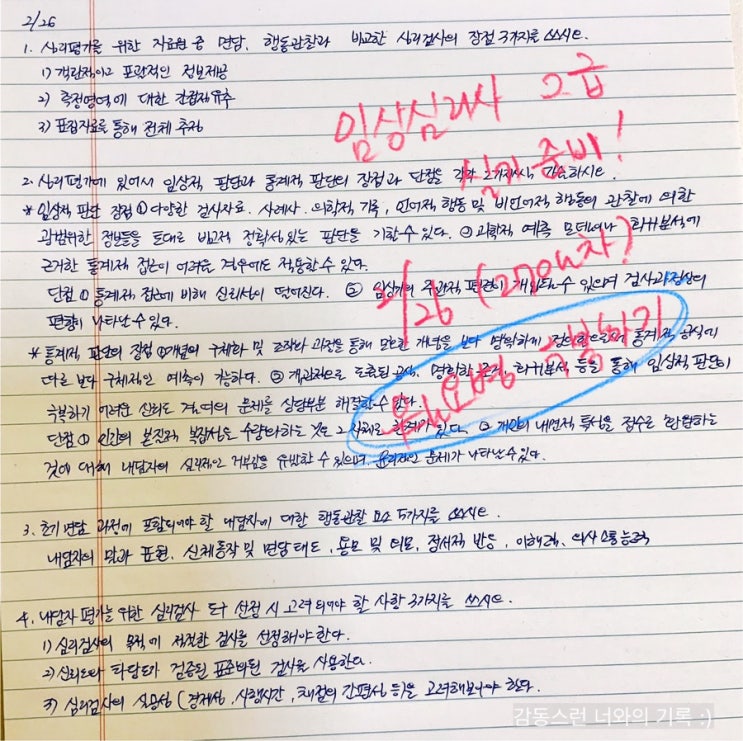 2/26
1. 심리평가를 위한 자료원 중 면담, 행동관찰과 비교한 심리검사의 장점 3가지를 쓰시오.
1) 객관적이고 포괄적인 정보제공
2) 측정영역에 대한 간접적 유추
3) 표집자료를 통해 전체 추정
임상심리사 2급
실기 준비!
2. 심리평가에 있어서 임상적 판단과 통계적 판단의 장점과 단점을 각각 2가지씩 기술하시오.
* 임상적 판단 장점 ① 다양한 검사자료, 사례사, 의학적 기록, 언어적 행동 및 비언어적 행동의 관찰에 의한
광범위한 정보들을 토대로 비교적 정확성 있는 판단을 기할 수 있다. ② 과학적 예측 모델이나 회귀분석에
근거한 통계적 접근이 어려운 경우에도 적용할 수 있다.
단점 ① 통계적 접근에 비해 신뢰성이 떨어진다. ② 임상가의 주관적 편견이 개입될 수 있으며 검사과정상의
편향이 나타날 수 있다.
2/26 (270일차)
* 통계적 판단의 장점 ① 개념의 구체화 및 조작화 과정을 통해 모호한 개념을 보다 명확하게 통계적 공식에
따른 보다 구체적인 예측이 가능하다. ② 객관적으로 도출된 공식, 명확한 회귀분석 등을 통해 임상적 판단이
극복하기 어려운 신뢰도 문제를 상당부분 해결할 수 있다.
무료동영 극복하기
단점 ① 인간의 본질적 복잡성을 수량화하는 것은 그 자체로 한계가 있다. ② 개인의 내면적 특성을 점수로 환원하는
것에 대해 내담자의 심리적인 거부감을 유발할 수 있으며, 윤리적인 문제가 나타날 수 있다.
3. 초기 면담 과정에 포함되어야 할 내담자에 대한 행동관찰 요소 5가지를 쓰시오.
내담자의 말과 표현, 신체동작 및 면담 태도, 용모 및 외모, 정서적 반응, 이해력, 의사소통능력
4. 내담자 평가를 위한 심리검사 도구 선정 시 고려되어야 할 사항 3가지를 쓰시오.
1) 심리검사의 목적에 적절한 검사를 선정해야 한다.
2) 신뢰도와 타당도가 검증된 표준화된 검사를 사용한다.
3) 심리검사의 실용성 (경제성, 시행시간, 채점의 간편성 등)을 고려해보아야 한다.
감동스런 너와의 기록 :)